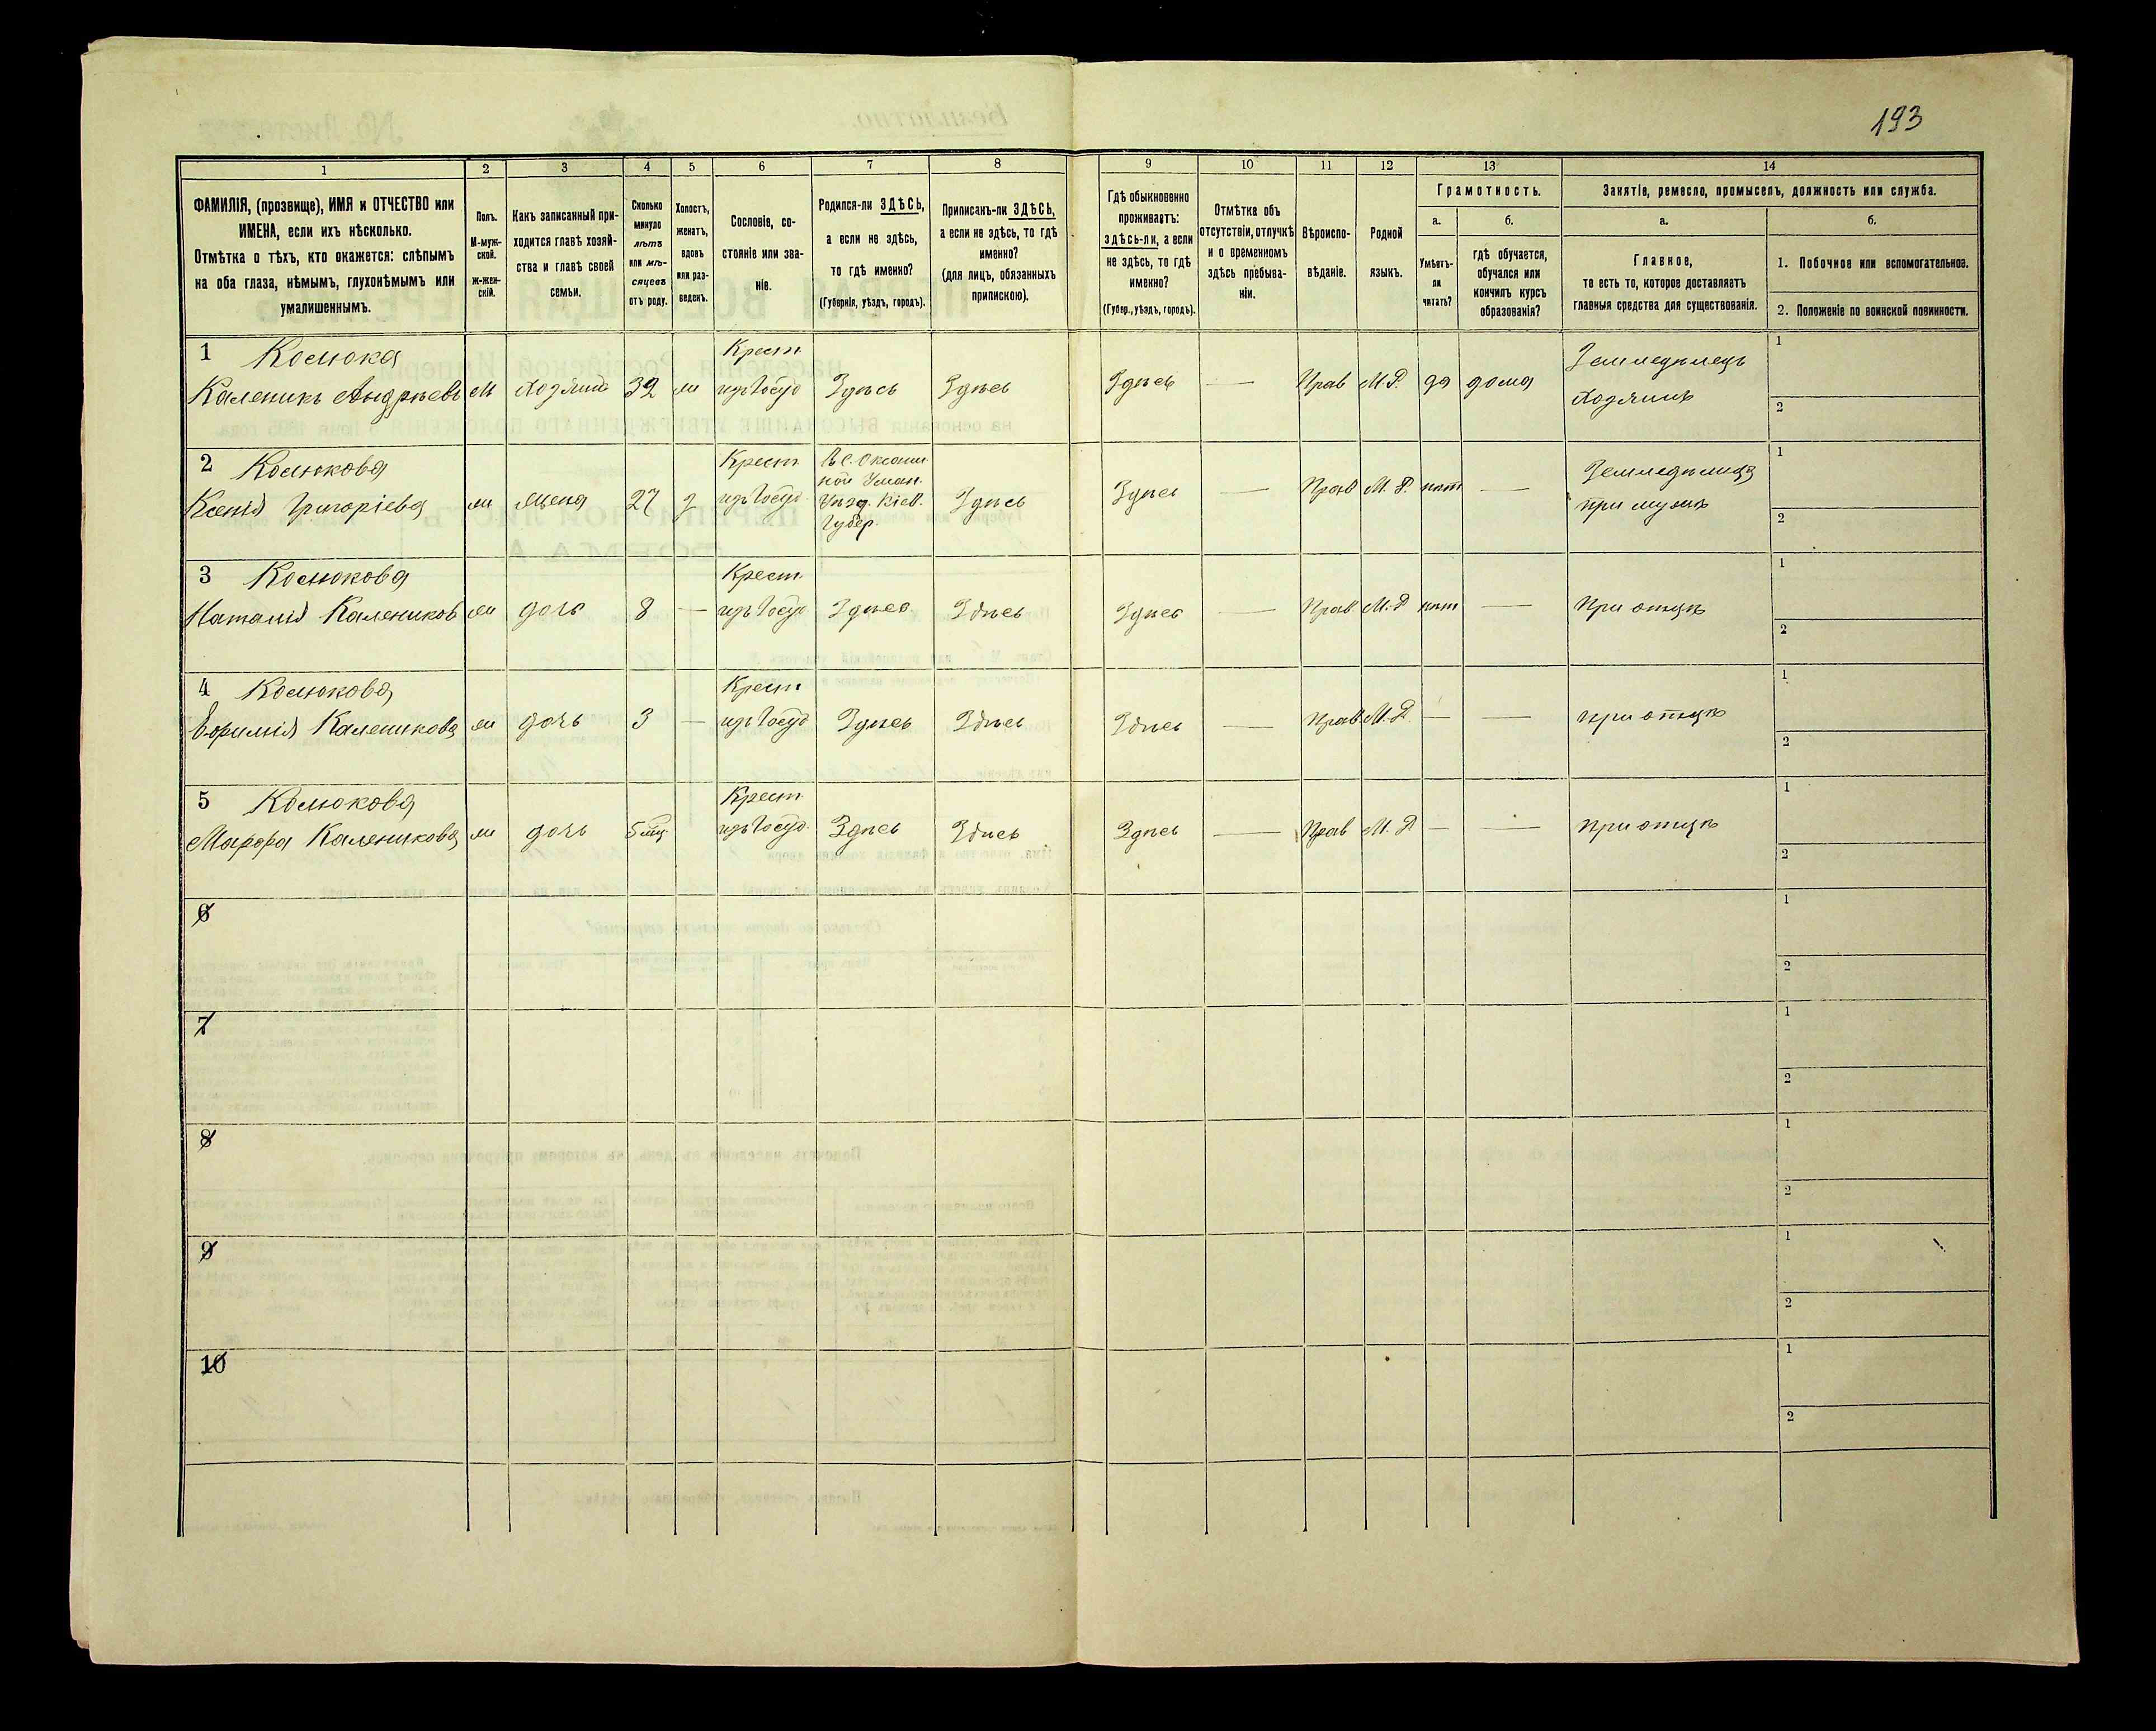 193
1
2
3
4
5
6
7
8
9
10
11
12
13
14
ФАМИЛІЯ, (прозвище), ИМЯ и ОТЧЕСТВО или
ИМЕНА, если ихъ нѣсколько.
Отмѣтка о тѣхъ, кто окажется: слѣпымъ
на оба глаза, нѣмымъ, глухонѣмымъ или
умалишеннымъ.
Полъ.
М-муж-
ской.
Ж-жен-
скій.
Какъ записанный при-
ходится главѣ хозяй-
ства и главѣ своей
семьи.
Сколько
минуло
лѣтъ
или мѣ-
сяцевъ
отъ роду.
Холостъ,
женатъ,
вдовъ
или раз-
веденъ.
Сословіе, со-
стояніе или зва-
ніе.
Родился-ли ЗДѢСЬ,
а если не здѣсь,
то гдѣ именно?
(Губернія, уѣздъ, городъ).
Приписанъ-ли ЗДѢСЬ,
а если не здѣсь, то гдѣ
именно?
(для лицъ, обязанныхъ
припискою).
Гдѣ обыкновенно
проживаетъ:
ЗДѢСЬ-ЛИ, а если
не здѣсь, то гдѣ
именно?
(Губер., уѣздъ, городъ).
Отмѣтка объ
отсутствіи, отлучкѣ
и о временномъ
здѣсь пребыва-
ніи.
Вѣроиспо-
вѣданіе.
Родной
языкъ.
Грамотность.
а.
Умѣетъ-
ли
читать?
б.
гдѣ обучается,
обучался или
кончилъ курсъ
образованія?
Занятіе, ремесло, промыселъ, должность или служба.
а.
Главное,
то есть то, которое доставляетъ
главныя средства для существованія.
б.
1. Побочное или вспомогательное.
2. Положеніе по воинской повинности.
1 Колюка Крест. Земледѣлецъ 1
Каленикъ Андрѣевъ М Хозяинъ 39 ж идъ Госуд Здѣсь Здѣсь Здѣсь — Прав М.Р. да дома Хозяинъ 2
2 Колюкова Крест. Земледѣлица 1
Ксенія Григоріева ж Жена 27 з Уѣзд. Кіев. Губер. Здѣсь Здѣсь — Прав М.Р. нѣт — при мужѣ 2
3 Колюкова Крест. 1
Наталія Калеников ж дочь 8 — Здѣсь Здѣсь Здѣсь — Прав М.Р нѣт — При отцѣ 2
4 Колюкова Крест 1
Ефимія Каленикова ж дочь 3 — Здѣсь Здѣсь Здѣсь — Прав М.Р. — — при отцѣ 2
5 Колюкова Крест 1
Марфа Каленикова ж дочь 5 мц. Здѣсь Здѣсь Здѣсь — Прав М.Р — — при отцѣ 2
6 1
2
7 1
2
8 1
2
9 1
2
10 1
2